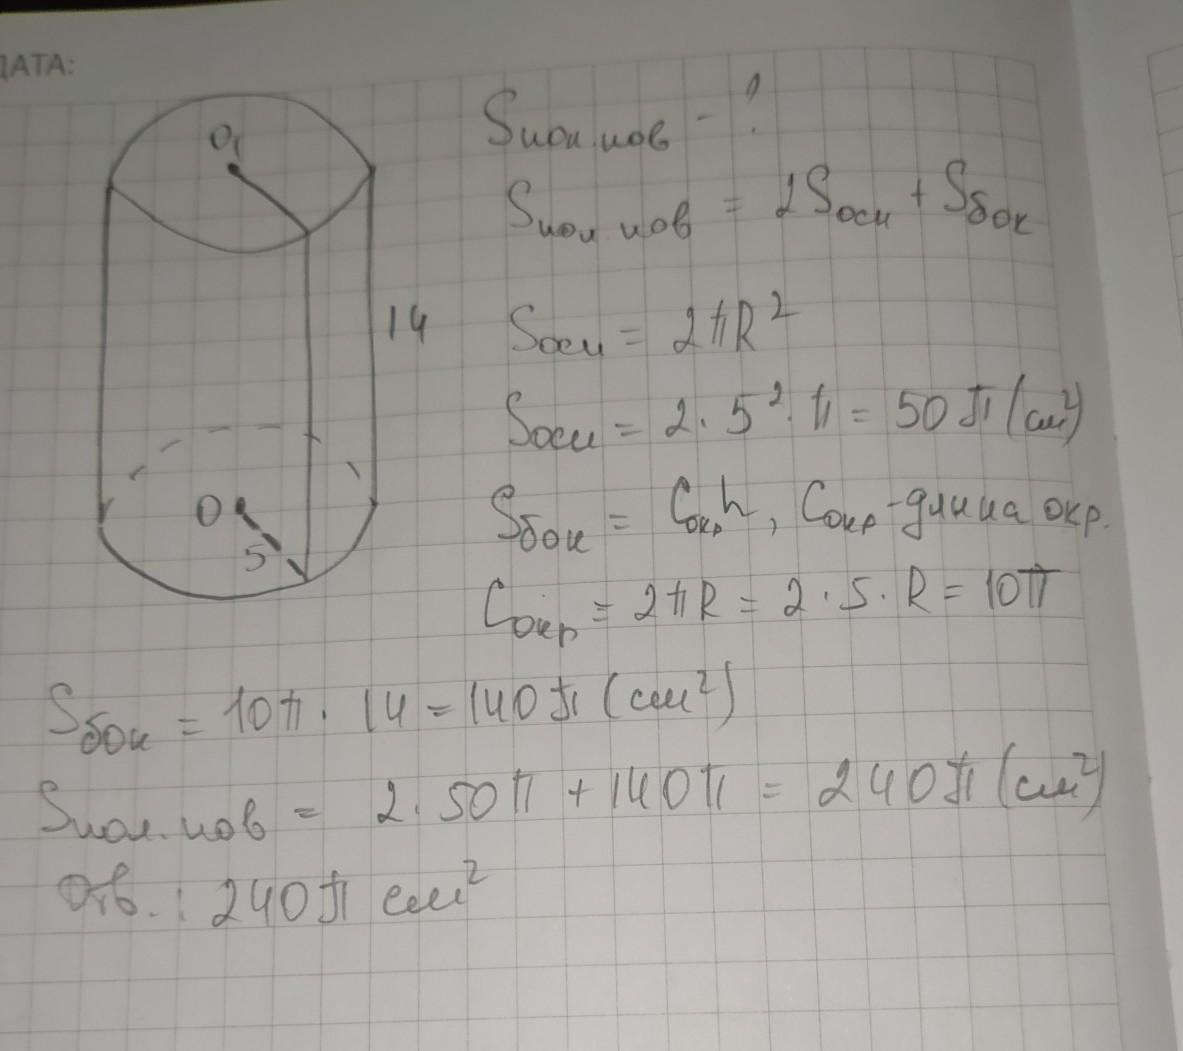 ДАТА:
O₁
Sпол.пов - ?
Sпол.пов = 2Sосн + Sбок
14
Sосн = 2πR²
Sосн = 2·5²·π = 50π (см²)
O
5
Sбок = Cокр h, Cокр - длина окр.
Cокр = 2πR = 2·5·R = 10π
Sбок = 10π · 14 = 140π (см²)
Sпол.пов = 2·50π + 140π = 240π (см²)
Отв.: 240π см²